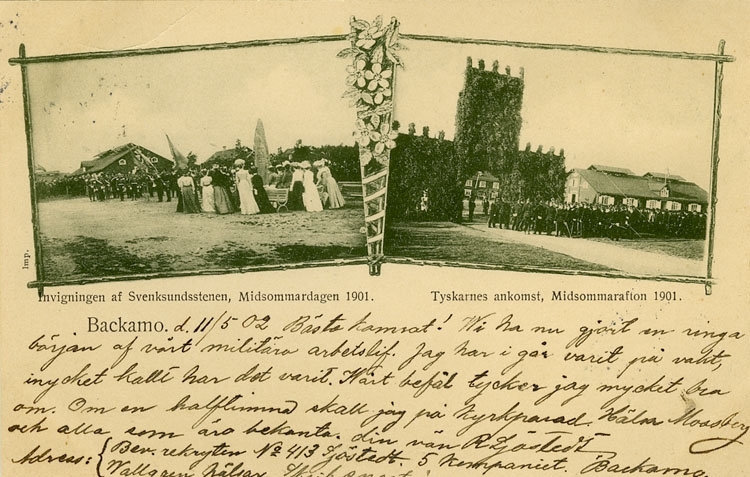 Imp.
Invigningen af Svenksundsstenen, Midsommardagen 1901.
Tyskarnes ankomst, Midsommarafton 1901.
Backamo. d. 11/5 02 Bästa kamrat! Vi ha nu gjort en ringa
början af vårt militära arbetslif. Jag har i går varit på vakt,
mycket kallt har det varit. Vårt befäl tycker jag mycket bra
om. Om en halftimma skall jag på kyrkparad. Hälsa Mossberg
och alla som äro bekanta. din vän R Sjöstedt
Adress: Bev. rekryten No 413 Sjöstedt. 5 Kompaniet. Backamo.
Wallgren hälsar. Skrif snart!